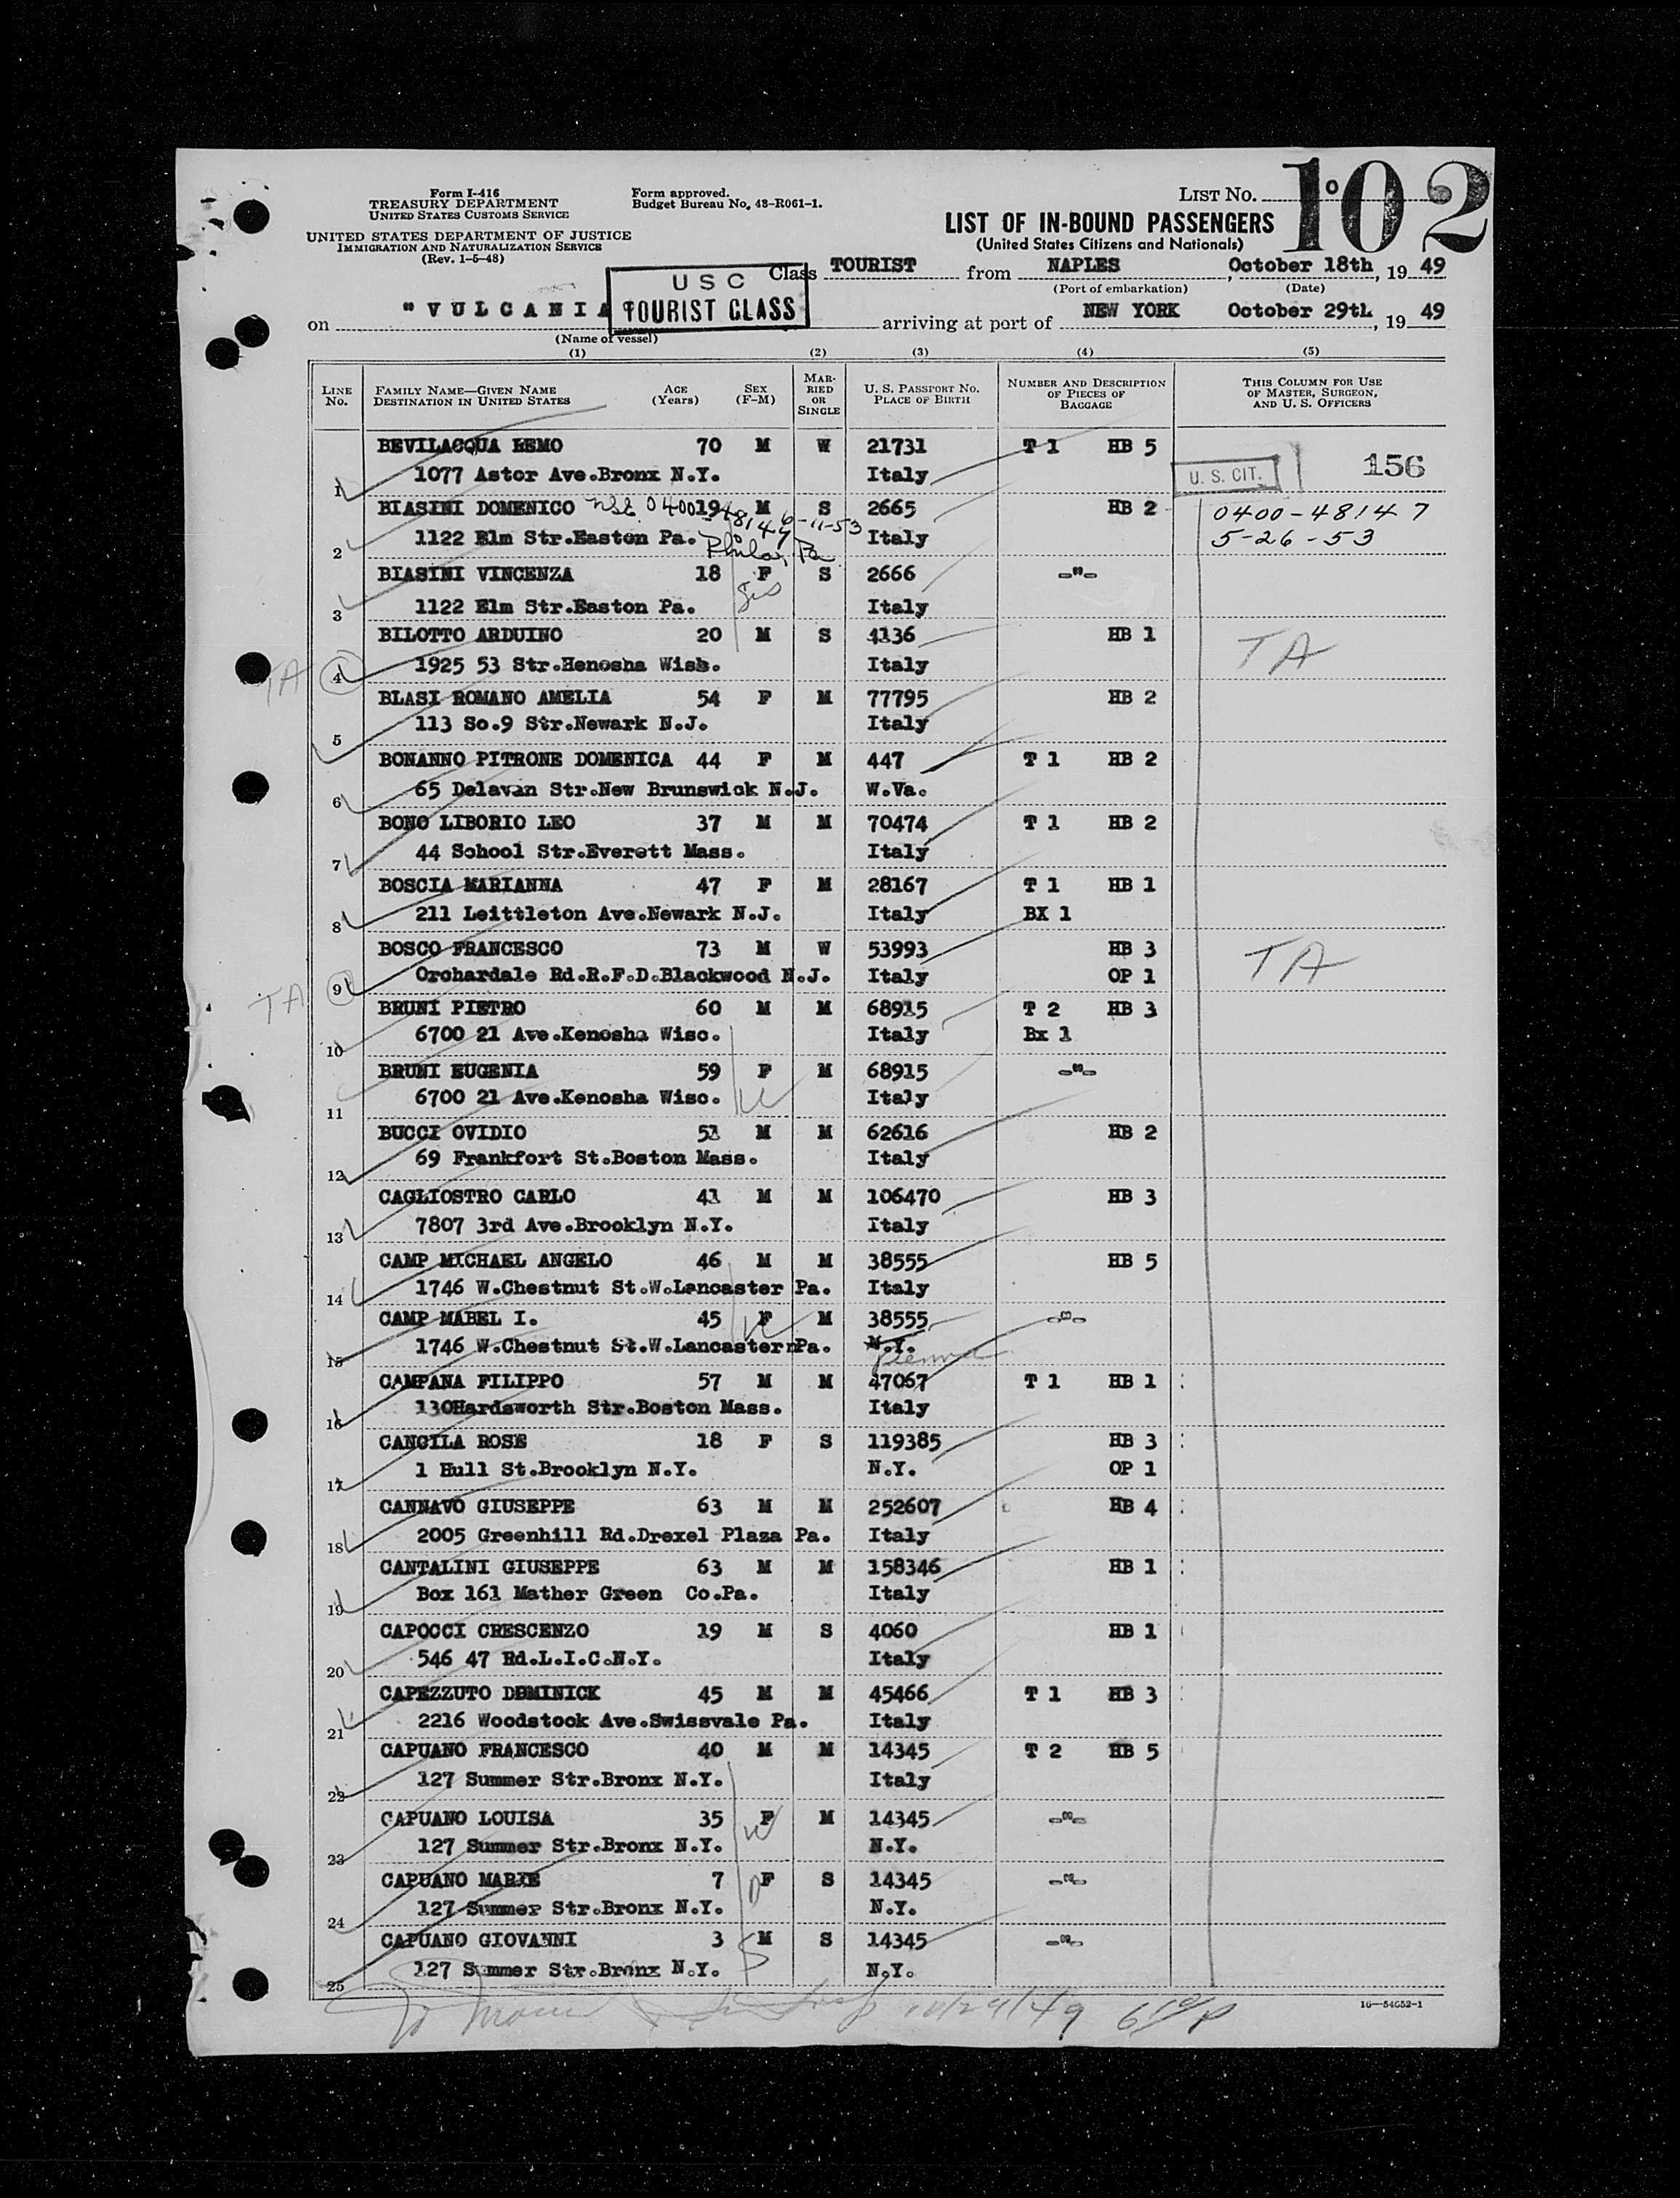 Form I-416
TREASURY DEPARTMENT
UNITED STATES CUSTOMS SERVICE
UNITED STATES DEPARTMENT OF JUSTICE
IMMIGRATION AND NATURALIZATION SERVICE
(Rev. 1-5-48)
Form approved.
Budget Bureau No. 43-R061-1.
LIST No. 102
LIST OF IN-BOUND PASSENGERS
(United States Citizens and Nationals)
USC
TOURIST CLASS
Class TOURIST from NAPLES, October 18th, 19 49
(Port of embarkation) (Date)
on "VULCANIA arriving at port of NEW YORK October 29th, 19 49
(Name of vessel)
(1) (2) (3) (4) (5)
LINE No. FAMILY NAME—GIVEN NAME DESTINATION IN UNITED STATES AGE (Years) SEX (F-M) MARRIED OR SINGLE U. S. PASSPORT No. PLACE OF BIRTH NUMBER AND DESCRIPTION OF PIECES OF BAGGAGE THIS COLUMN FOR USE OF MASTER, SURGEON, AND U. S. OFFICERS
BEVILACQUA REMO 70 M W 21731 T 1 HB 5
1 1077 Astor Ave.Bronx N.Y. Italy U. S. CIT. 156
BIASINI DOMENICO 0400 19 M S 2665 HB 2 0400-48147
48147 6-11-53
2 1122 Elm Str.Easton Pa. Phila, Pa Italy 5-26-53
BIASINI VINCENZA 18 F S 2666 -"-
3 1122 Elm Str.Easton Pa. sis Italy
BILOTTO ARDUINO 20 M S 4136 HB 1 TA
TA 4 1925 53 Str.Henosha Wish. Italy
BLASI ROMANO AMELIA 54 F M 77795 HB 2
5 113 So.9 Str.Newark N.J. Italy
BONANNO PITRONE DOMENICA 44 F M 447 T 1 HB 2
6 65 Delavan Str.New Brunswick N.J. W.Va.
BONO LIBORIO LEO 37 M M 70474 T 1 HB 2
7 44 School Str.Everett Mass. Italy
BOSCIA MARIANNA 47 F M 28167 T 1 HB 1
8 211 Leittleton Ave.Newark N.J. Italy BX 1
BOSCO FRANCESCO 73 M W 53993 HB 3 TA
TA 9 Orchardale Rd.R.F.D.Blackwood N.J. Italy OP 1
BRUNI PIETRO 60 M M 68915 T 2 HB 3
10 6700 21 Ave.Kenosha Wisc. Italy Bx 1
BRUNI EUGENIA 59 F M 68915 -"-
11 6700 21 Ave.Kenosha Wisc. W Italy
BUCCI OVIDIO M M 62616 HB 2
12 69 Frankfort St.Boston Mass. Italy
CAGLIOSTRO CARLO 41 M M 106470 HB 3
13 7807 3rd Ave.Brooklyn N.Y. Italy
CAMP MICHAEL ANGELO 46 M M 38555 HB 5
14 1746 W.Chestnut St.W.Lancaster Pa. Italy
CAMP MABEL I. 45 F M 38555 -"-
15 1746 W.Chestnut St.W.Lancaster Pa. W N.Y.
CAMPANA FILIPPO 57 M M 47067 T 1 HB 1
16 130Hardsworth Str.Boston Mass. Italy
CANGILA ROSE 18 F S 119385 HB 3
17 1 Hull St.Brooklyn N.Y. N.Y. OP 1
CANNAVO GIUSEPPE 63 M M 252607 HB 4
18 2005 Greenhill Rd.Drexel Plaza Pa. Italy
CANTALINI GIUSEPPE 63 M M 158346 HB 1
19 Box 161 Mather Green Co.Pa. Italy
CAPOCCI CRESCENZO 19 M S 4060 HB 1
20 546 47 Rd.L.I.C.N.Y. Italy
CAPEZZUTO DOMINICK 45 M M 45466 T 1 HB 3
21 2216 Woodstock Ave.Swissvale Pa. Italy
CAPUANO FRANCESCO 40 M M 14345 T 2 HB 5
22 127 Summer Str.Bronx N.Y. Italy
CAPUANO LOUISA 35 F M 14345 -"-
23 127 Summer Str.Bronx N.Y. W N.Y.
CAPUANO MARIE 7 F S 14345 -"-
24 127 Summer Str.Bronx N.Y. D N.Y.
CAPUANO GIOVANNI 3 M S 14345 -"-
25 127 Summer Str.Bronx N.Y. S N.Y.
10/29/49
16—54652-1